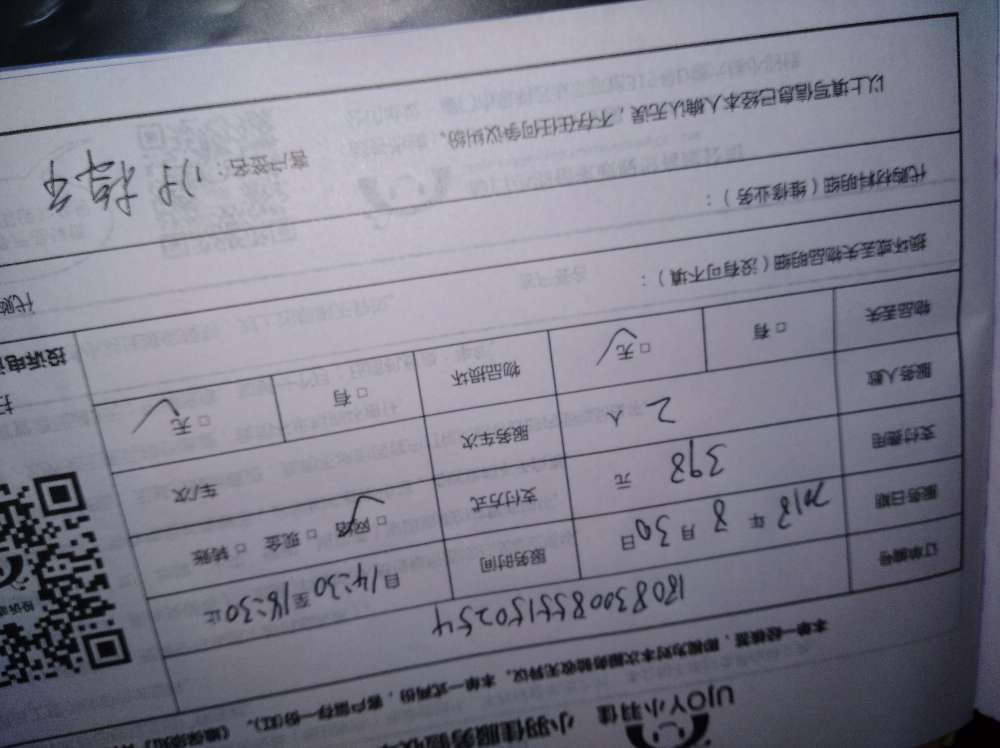 UJOY小羽佳
小羽佳服务验收单
本单一经核签，即视为对本次服务验收无异议。本单一式两份，客户留存一份(红)，
订单编号 180830085515 0254
服务日期 2018 年 8 月 30 日 服务时间 自 14:30 至 18:30 止
支付费用 398 元 支付方式 □ 网络 □ 现金 □ 转账
服务人数 2 人 服务车次 车/次
物品丢失 □ 有 □ 无 物品损坏 □ 有 □ 无
损坏或丢失物品明细（没有可不填）：
代购材料明细（维修业务）： 代购
以上填写信息已经本人确认无误，不存在任何争议纠纷。
客户签名：
投诉电话
扫